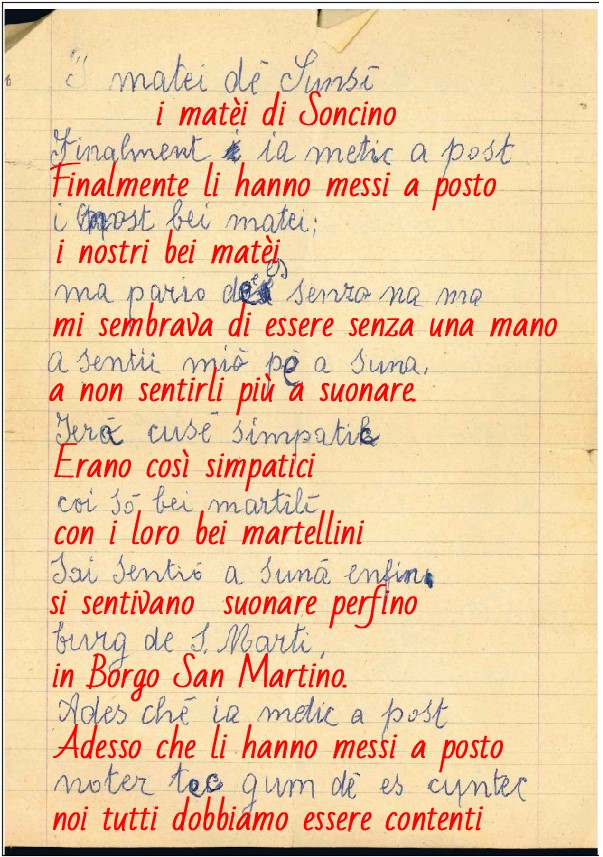 I matei dē Sunsī
i matèi di Soncino
Finalment ia metic a post
Finalmente li hanno messi a posto
i nost bei matei;
i nostri bei matèi
ma pario de es senzo na ma
mi sembrava di essere senza una mano
a sentii miò pē a suna.
a non sentirli più a suonare.
Jerā cusē simpatic
Erano così simpatici
coi sō bei martilē
con i loro bei martellini
Sai sentiō a sunā enfin
si sentivano suonare perfino
burg de S. Marti,
in Borgo San Martino.
Ades chē ia metic a post
Adesso che li hanno messi a posto
noter tec gum dē es cuntec
noi tutti dobbiamo essere contenti